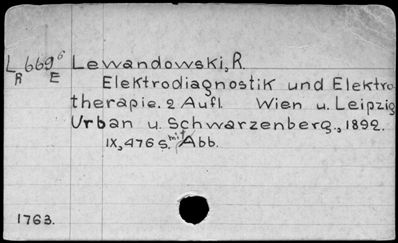 L 669⁶ Lewandowski, R.
R E Elektrodiagnostik und Elektro-
therapie. 2 Aufl Wien u. Leipzig
Urban u. Schwarzenberg., 1892.
IX, 476 S. mit Abb.
1763.